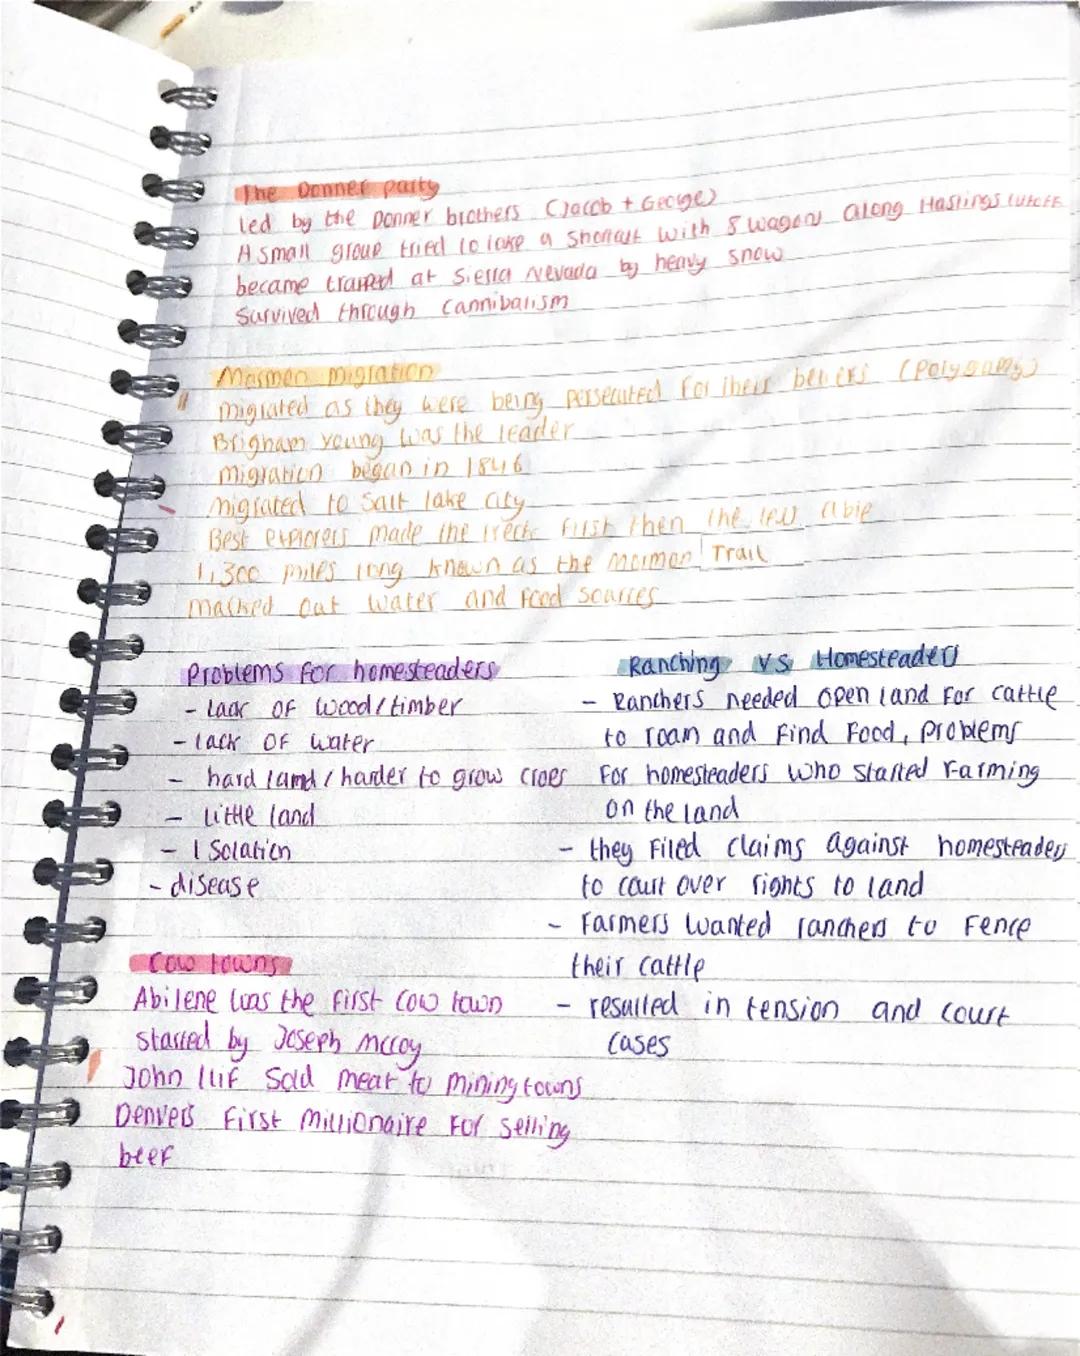 The Donner party
led by the Donner brothers (Jacob + George)
A small group tried to take a shortcut with 8 wagons along Hastings cutoff
became trapped at Sierra Nevada by heavy snow
Survived through cannibalism
Mormon migration
migrated as they were being persecuted for their beliefs (Polygamy)
Brigham young was the leader
migration began in 1846
migrated to Salt lake city
Best explorers made the treck first then the less able
1,300 miles long known as the mormon Trail
marked out water and food sources
Problems for homesteaders
- Lack of wood/timber
- lack of water
- hard land / harder to grow crops
- Little land
- Isolation
- disease
Cow towns
Abilene was the first cow town
started by Joseph mccoy
John Iliff Sold meat to mining towns
Denvers first millionaire for selling
beef
Ranching vs Homesteaders
- Ranchers needed open land for cattle
to roam and find food, problems
for homesteaders who started farming
on the land
- they filed claims against homesteaders
to court over rights to land
- Farmers wanted ranchers to fence
their cattle
- resulted in tension and court
cases